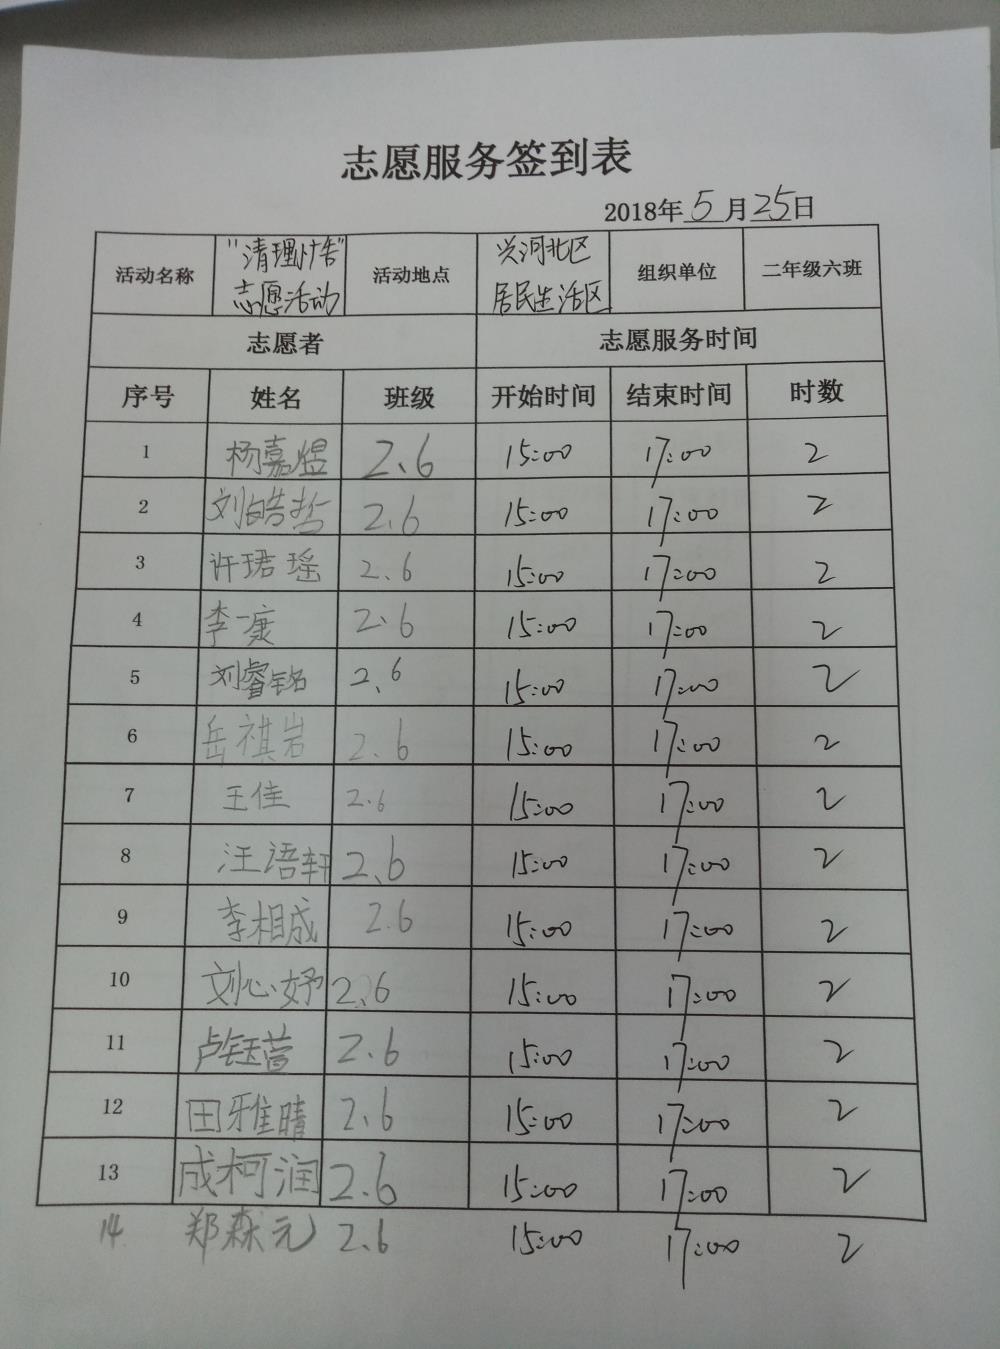 志愿服务签到表
2018年5月25日
活动名称 "清理小广告"志愿活动 活动地点 兴河北区居民生活区 组织单位 二年级六班
志愿者 志愿服务时间
序号 姓名 班级 开始时间 结束时间 时数
1 杨嘉煜 2.6 15:00 17:00 2
2 刘皓哲 2.6 15:00 17:00 2
3 许珺瑶 2.6 15:00 17:00 2
4 李一康 2.6 15:00 17:00 2
5 刘睿铭 2.6 15:00 17:00 2
6 岳祺岩 2.6 15:00 17:00 2
7 王佳 2.6 15:00 17:00 2
8 汪语轩 2.6 15:00 17:00 2
9 李相成 2.6 15:00 17:00 2
10 刘心妤 2.6 15:00 17:00 2
11 卢钰萱 2.6 15:00 17:00 2
12 田雅晴 2.6 15:00 17:00 2
13 成柯润 2.6 15:00 17:00 2
14 郑森元 2.6 15:00 17:00 2